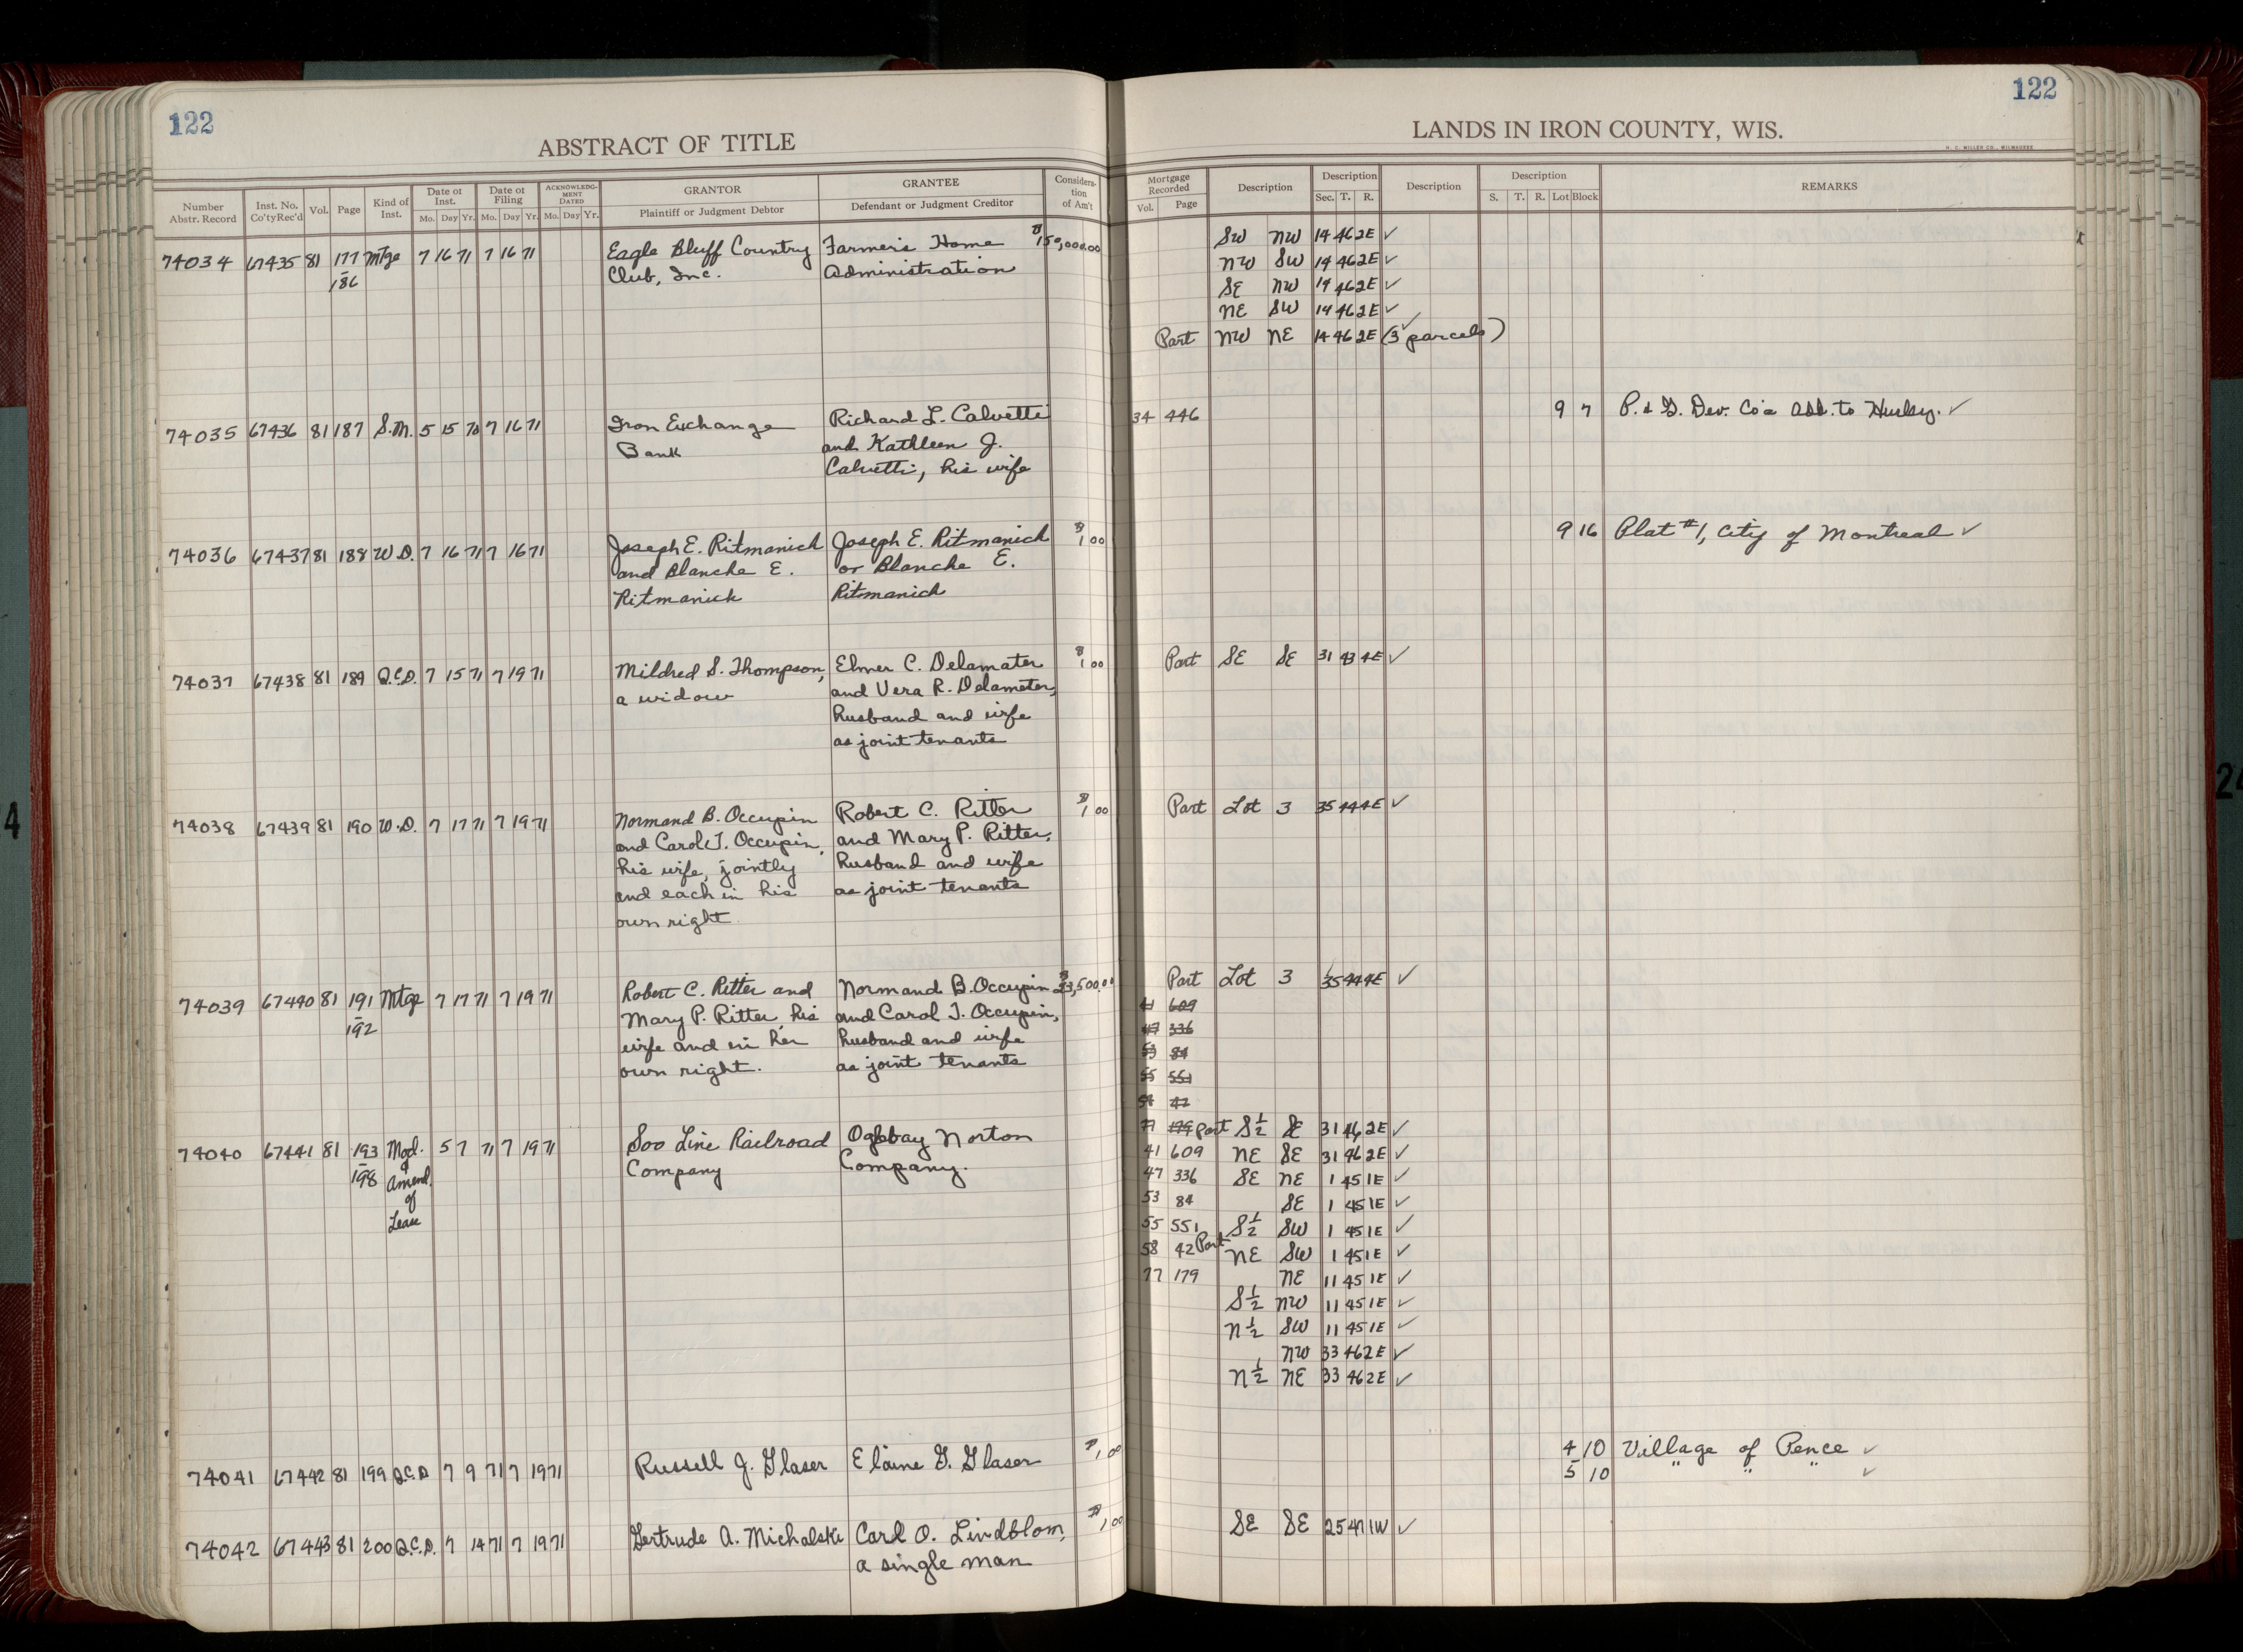 122
ABSTRACT OF TITLE
Number Abstr. Record
Inst. No. Co'tyRec'd
Vol.
Page
Kind of Inst.
Date of Inst.
Mo. Day Yr.
Date of Filing
Mo. Day Yr.
ACKNOWLEDGMENT DATED
Mo. Day Yr.
GRANTOR
Plaintiff or Judgment Debtor
GRANTEE
Defendant or Judgment Creditor
Consideration of Am't
74034 67435 81 177 Mtge 7 16 71 7 16 71 Eagle Bluff Country Farmers Home $150,000.00
- 186 Club, Inc. Administration
74035 67436 81 187 S.M. 5 15 70 7 16 71 Iron Exchange Richard L. Calvetti
Bank and Kathleen J.
Calvetti, his wife
74036 67437 81 188 W.D. 7 16 71 7 16 71 Joseph E. Ritmanich Joseph E. Ritmanich $1 00
and Blanche E. or Blanche E.
Ritmanich Ritmanich
74037 67438 81 189 Q.C.D. 7 15 71 7 19 71 Mildred S. Thompson, Elmer C. Delamater $1 00
a widow and Vera R. Delamater,
husband and wife
as joint tenants
74038 67439 81 190 W.D. 7 17 71 7 19 71 Normand B. Occupin Robert C. Ritter $1 00
and Carol J. Occupin, and Mary P. Ritter,
his wife, jointly husband and wife
and each in his as joint tenants
own right
74039 67440 81 191 Mtge 7 17 71 7 19 71 Robert C. Ritter and Normand B. Occupin $23,500.00
- 192 Mary P. Ritter, his and Carol J. Occupin,
wife and in her husband and wife
own right. as joint tenants
74040 67441 81 193 Mod. 5 7 71 7 19 71 Soo Line Railroad Oglebay Norton
- 198 & Amend. Company Company.
of
Lease
74041 67442 81 199 Q.C.D 7 9 71 7 19 71 Russell J. Glaser Elaine G. Glaser $1,00
74042 67443 81 200 Q.C.D. 7 14 71 7 19 71 Gertrude A. Michalski Carl O. Lindblom, $1,00
a single man
122
LANDS IN IRON COUNTY, WIS.
H. C. MILLER CO., MILWAUKEE
Mortgage Recorded
Vol. Page
Description
Description
Sec. T. R.
Description
Description
S. T. R. Lot Block
REMARKS
SW NW 14 46 2E ✓
NW SW 14 46 2E ✓
SE NW 14 46 2E ✓
NE SW 14 46 2E ✓
Part NW NE 14 46 2E (3 parcels) ✓
34 446 9 7 P. & G. Dev. Co's Add. to Hurley. ✓
9 16 Plat #1, City of Montreal ✓
Part SE SE 31 43 4E ✓
Part Lot 3 35 44 4E ✓
Part Lot 3 35 44 4E ✓
41 609
47 336
53 84
55 551
58 42
77 179 Part S½ SE 31 46 2E ✓
41 609 NE SE 31 46 2E ✓
47 336 SE NE 1 45 1E ✓
53 84 SE 1 45 1E ✓
55 551 S½ SW 1 45 1E ✓
58 42 Part NE SW 1 45 1E ✓
77 179 NE 11 45 1E ✓
S½ NW 11 45 1E ✓
N½ SW 11 45 1E ✓
NW 33 46 2E ✓
N½ NE 33 46 2E ✓
4 10 Village of Pence ✓
5 10 " " " ✓
SE SE 25 47 1W ✓